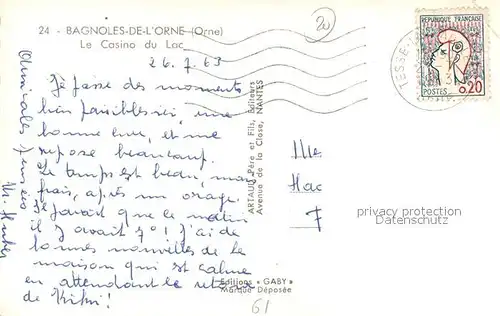 24 - BAGNOLES-DE-L'ORNE (Orne)
Le Casino du Lac
20
26.7.63
Je passe des moments
bien paisibles ici, une
bonne cure, et me
repose beaucoup.
Le temps est beau, mais
frais, après un orage.
Il paraît que ce matin
il y avait 7°! J'ai de
bonnes nouvelles de la
maison qui est calme
en attendant le retour
de Kiki!
Amicales pensées
ARTAUD Père et Fils, Éditeurs
Avenue de la Close, NANTES
REPUBLIQUE FRANÇAISE
POSTES 0,20
TESSE
Mlle
Hac
7
privacy protection
Datenschutz
Editions "GABY"
Marque Déposée
61